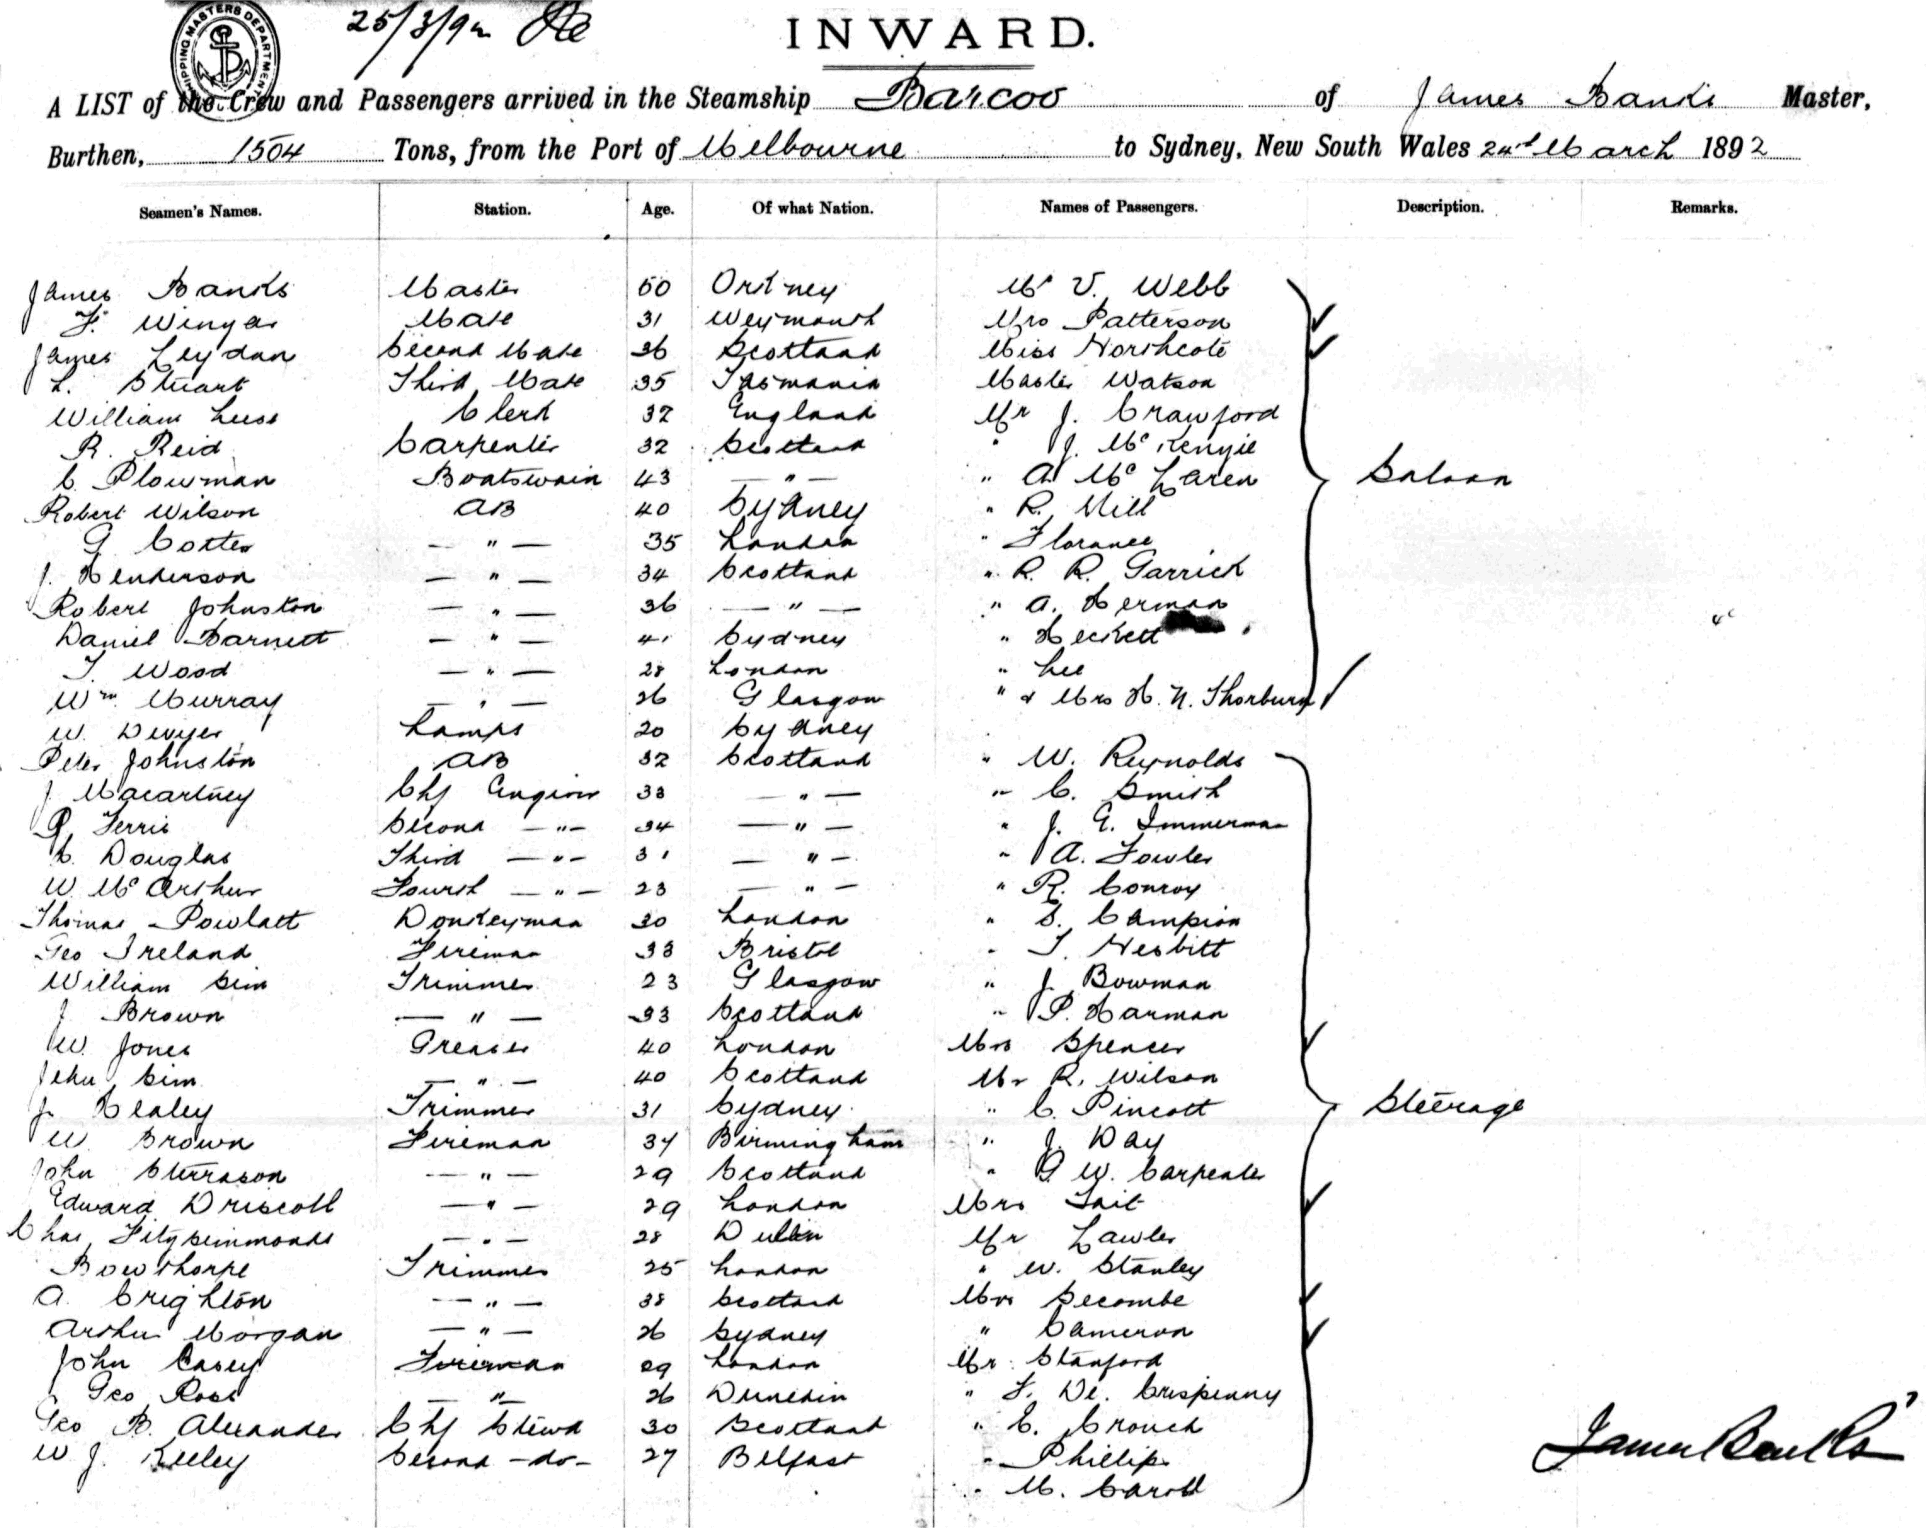 SHIPPING MASTERS DEPARTMENT
25/3/92
INWARD.
A LIST of the Crew and Passengers arrived in the Steamship Barcoo of James Banks Master,
Burthen, 1504 Tons, from the Port of Melbourne to Sydney, New South Wales 24th March 1892
Seamen's Names. Station. Age. Of what Nation. Names of Passengers. Description. Remarks.
James Banks Master 50 Orkney Mr V. Webb
F. Winyar Mate 31 Weymouth Mrs Patterson
James Leydan Second Mate 36 Scotland Miss Northcote
L. Stuart Third Mate 35 Tasmania Master Watson
William Luss Clerk 32 England Mr J. Crawford
R. Reid Carpenter 32 Scotland " J. McKenzie
C. Plowman Boatswain 43 — " — " A. McLaren Saloon
Robert Wilson AB 40 Sydney " R. Mill
G. Cotter — " — 35 London " Florance
J. Henderson — " — 34 Scotland " R. R. Garrick
Robert Johnston — " — 36 — " — " A. Herman
Daniel Barnett — " — 41 Sydney " Heckett
T. Wood — " — 28 London " Lee
Wm. Murray — " — 26 Glasgow " & Mrs H. N. Thorburn
W. Dwyer Lamps 20 Sydney
Peter Johnston AB 32 Scotland " W. Reynolds
J. Macartney Chf Engineer 38 — " — " C. Smith
P. Ferris Second — " — 34 — " — " J. E. Immerman
C. Douglas Third — " — 31 — " — " A. Fowler
W. McArthur Fourth — " — 23 — " — " R. Conroy
Thomas Powlatt Donkeyman 30 London " S. Campion
Geo Ireland Fireman 38 Bristol " T. Nesbitt
William Sim Trimmer 23 Glasgow " J. Bowman
J. Brown — " — 33 Scotland " P. Harman
W. Jones Greaser 40 London Mrs Spencer
John Sim — " — 40 Scotland Mr R. Wilson
J. Healey Trimmer 31 Sydney " C. Pincott Steerage
W. Brown Fireman 34 Birmingham " J. Day
John — " — 29 Scotland " G. W. Carpenter
Edward Driscoll — " — 29 London Mrs Tait
Chas Fitzsimmonds — " — 28 Dublin Mr Lawler
Bowthorpe Trimmer 25 London " W. Stanley
A. Crighton — " — 38 Scotland Mrs Secombe
Arthur Morgan — " — 26 Sydney " Cameron
John Casey Fireman 29 London Mr Stanford
Geo Ross — " — 26 Dunedin " F. De. Crespinny
Geo B. Alexander Chf Stewd 30 Scotland " C. Crouch
W. J. Keeley Second - do - 27 Belfast " Phillips
" M. Caroll
James Banks